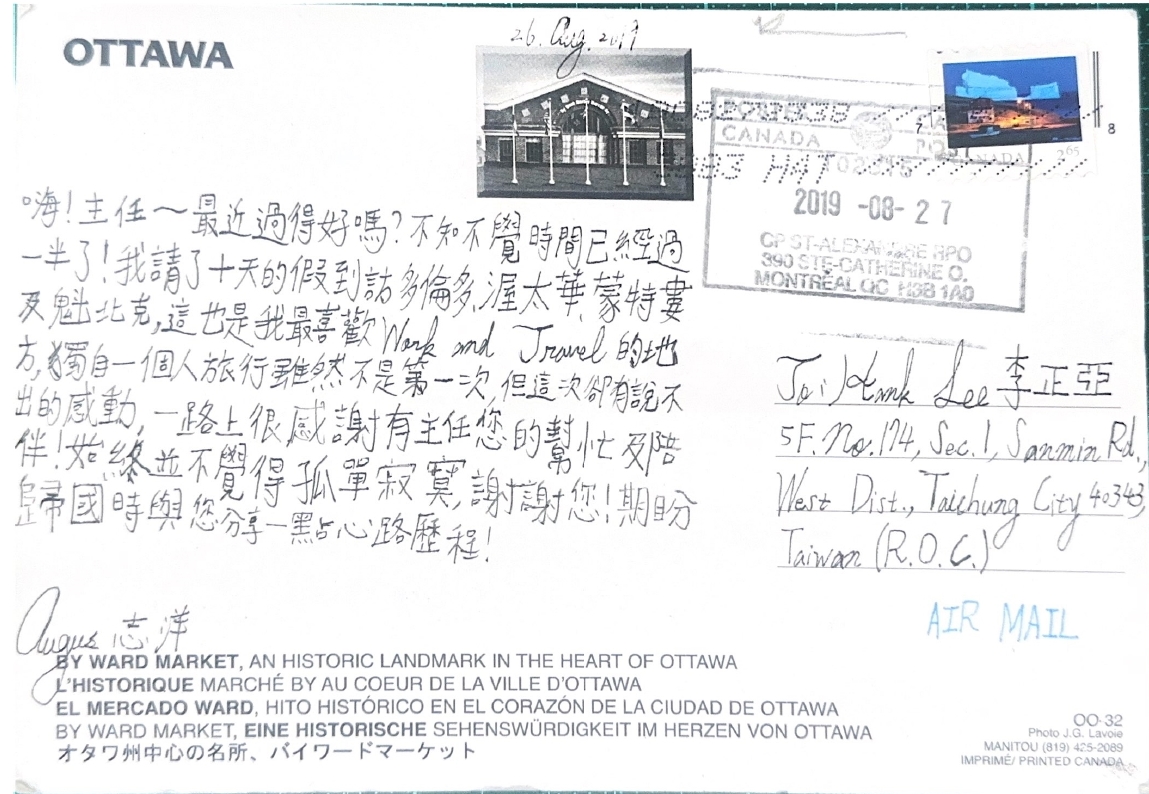 OTTAWA
26. Aug. 2019
CANADA
POST
CANADA
2.65
7
8
2019 -08- 27
CP ST-ALEXANDRE RPO
390 STE-CATHERINE O.
MONTRÉAL QC H3B 1A0
嗨!主任～最近過得好嗎?不知不覺時間已經過
一半了!我請了十天的假到訪多倫多、渥太華、蒙特婁
及魁北克,這也是我最喜歡Work and Travel的地
方,獨自一個人旅行雖然不是第一次,但這次卻有說不
出的感動,一路上很感謝有主任您的幫忙及陪
伴!始終並不覺得孤單寂寞,謝謝您!期盼
歸國時與您分享一點心路歷程!
Angus 志洋
Lee 李正亞
5F. No.174, Sec.1, Sanmin Rd.,
West Dist., Taichung City 40343,
Taiwan (R.O.C.)
AIR MAIL
BY WARD MARKET, AN HISTORIC LANDMARK IN THE HEART OF OTTAWA
L'HISTORIQUE MARCHÉ BY AU COEUR DE LA VILLE D'OTTAWA
EL MERCADO WARD, HITO HISTÓRICO EN EL CORAZÓN DE LA CIUDAD DE OTTAWA
BY WARD MARKET, EINE HISTORISCHE SEHENSWÜRDIGKEIT IM HERZEN VON OTTAWA
オタワ州中心の名所、バイワードマーケット
OO-32
Photo J.G. Lavoie
MANITOU (819) 425-2089
IMPRIMÉ/ PRINTED CANADA